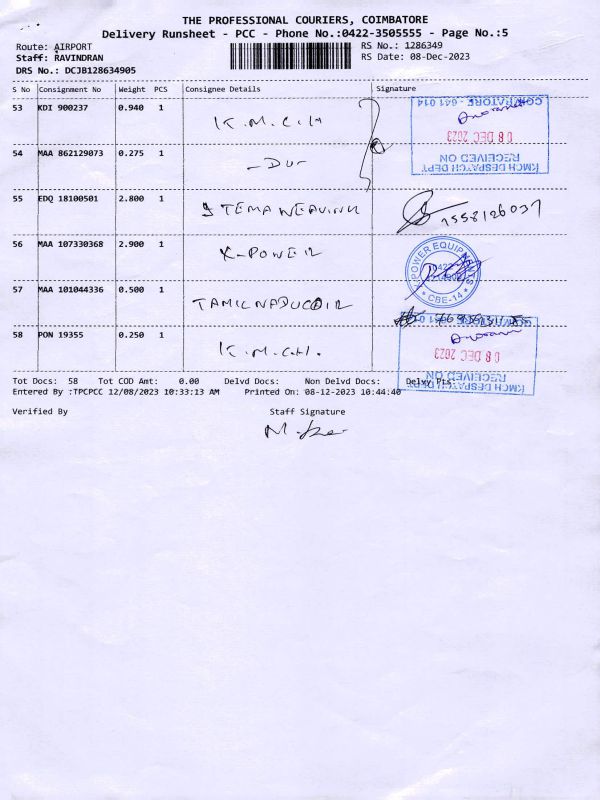 THE PROFESSIONAL COURIERS, COIMBATORE
Delivery Runsheet - PCC - Phone No.:0422-3505555 - Page No.:5
Route: AIRPORT RS No.: 1286349
Staff: RAVINDRAN RS Date: 08-Dec-2023
DRS No.: DCJB128634905
S No Consignment No Weight PCS Consignee Details Signature
53 KDI 900237 0.940 1 K.M.C.H
COIMBATORE - 641 014
08 DEC 2023
RECEIVED ON
KMCH DESPATCH DEPT
54 MAA 862129073 0.275 1 -Du-
55 EDQ 18100501 2.800 1 STEMA WEAVING 7558126037
56 MAA 107330368 2.900 1 K-POWER
POWER EQUIP
CBE-14
57 MAA 101044336 0.500 1 TAMILNADU COIR
58 PON 19355 0.250 1 K.M.C.H.
COIMBATORE - 641 014
08 DEC 2023
RECEIVED ON
KMCH DESPATCH DEPT
Tot Docs: 58 Tot COD Amt: 0.00 Delvd Docs: Non Delvd Docs: Delvy Pts:
Entered By :TPCPCC 12/08/2023 10:33:13 AM Printed On: 08-12-2023 10:44:40
Verified By Staff Signature